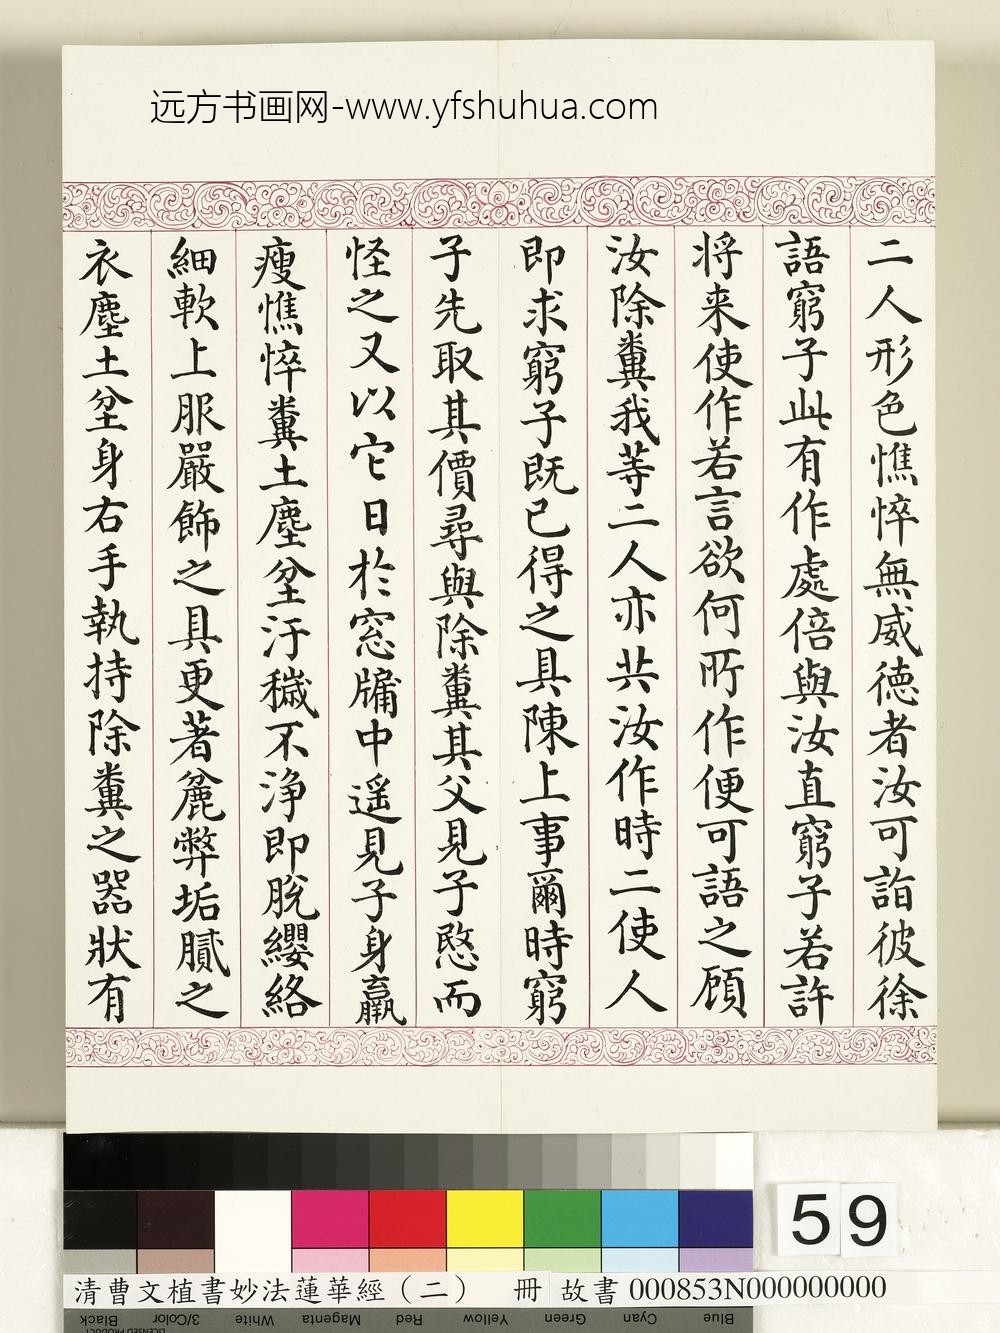 远方书画网-www.yfshuhua.com
二人形色憔悴無威徳者汝可詣彼徐
語窮子此有作處倍與汝直窮子若許
将来使作若言欲何所作便可語之顧
汝除糞我等二人亦共汝作時二使人
即求窮子既已得之具陳上事爾時窮
子先取其價尋與除糞其父見子愍而
怪之又以它日於窓牖中遥見子身羸
瘦憔悴糞土塵坌汙穢不浄即脱纓絡
細軟上服嚴飾之具更著麁弊垢膩之
衣塵土坌身右手執持除糞之器狀有
59
清曹文植書妙法蓮華經（二） 冊 故書 000853N000000000
Black 3/Color White Magenta Red Yellow Green Cyan Blue
LICENSED PRODUCT